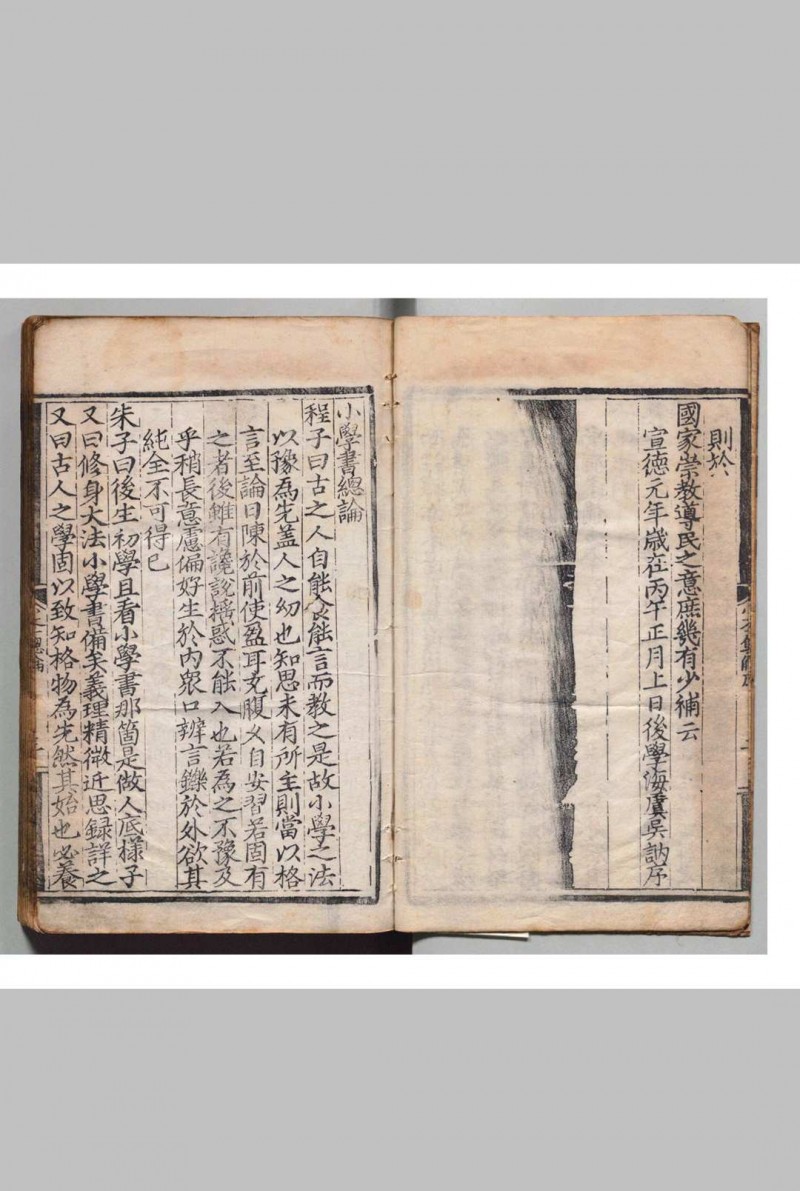 則於
國家崇教導民之意庶幾有少補云
宣德元年歲在丙午正月上日後學海虞吳訥序
小學書總論
程子曰古之人自能食能言而教之是故小學之法
以豫為先蓋人之幼也知思未有所主則當以格
言至論日陳於前使盈耳充腹久自安習若固有
之者後雖有讒說搖惑不能入也若為之不豫及
乎稍長意慮偏好生於內眾口辨言鑠於外欲其
純全不可得已
朱子曰後生初學且看小學書那箇是做人底樣子
又曰修身大法小學書備矣義理精微近思録詳之
又曰古人之學固以致知格物為先然其始也必養